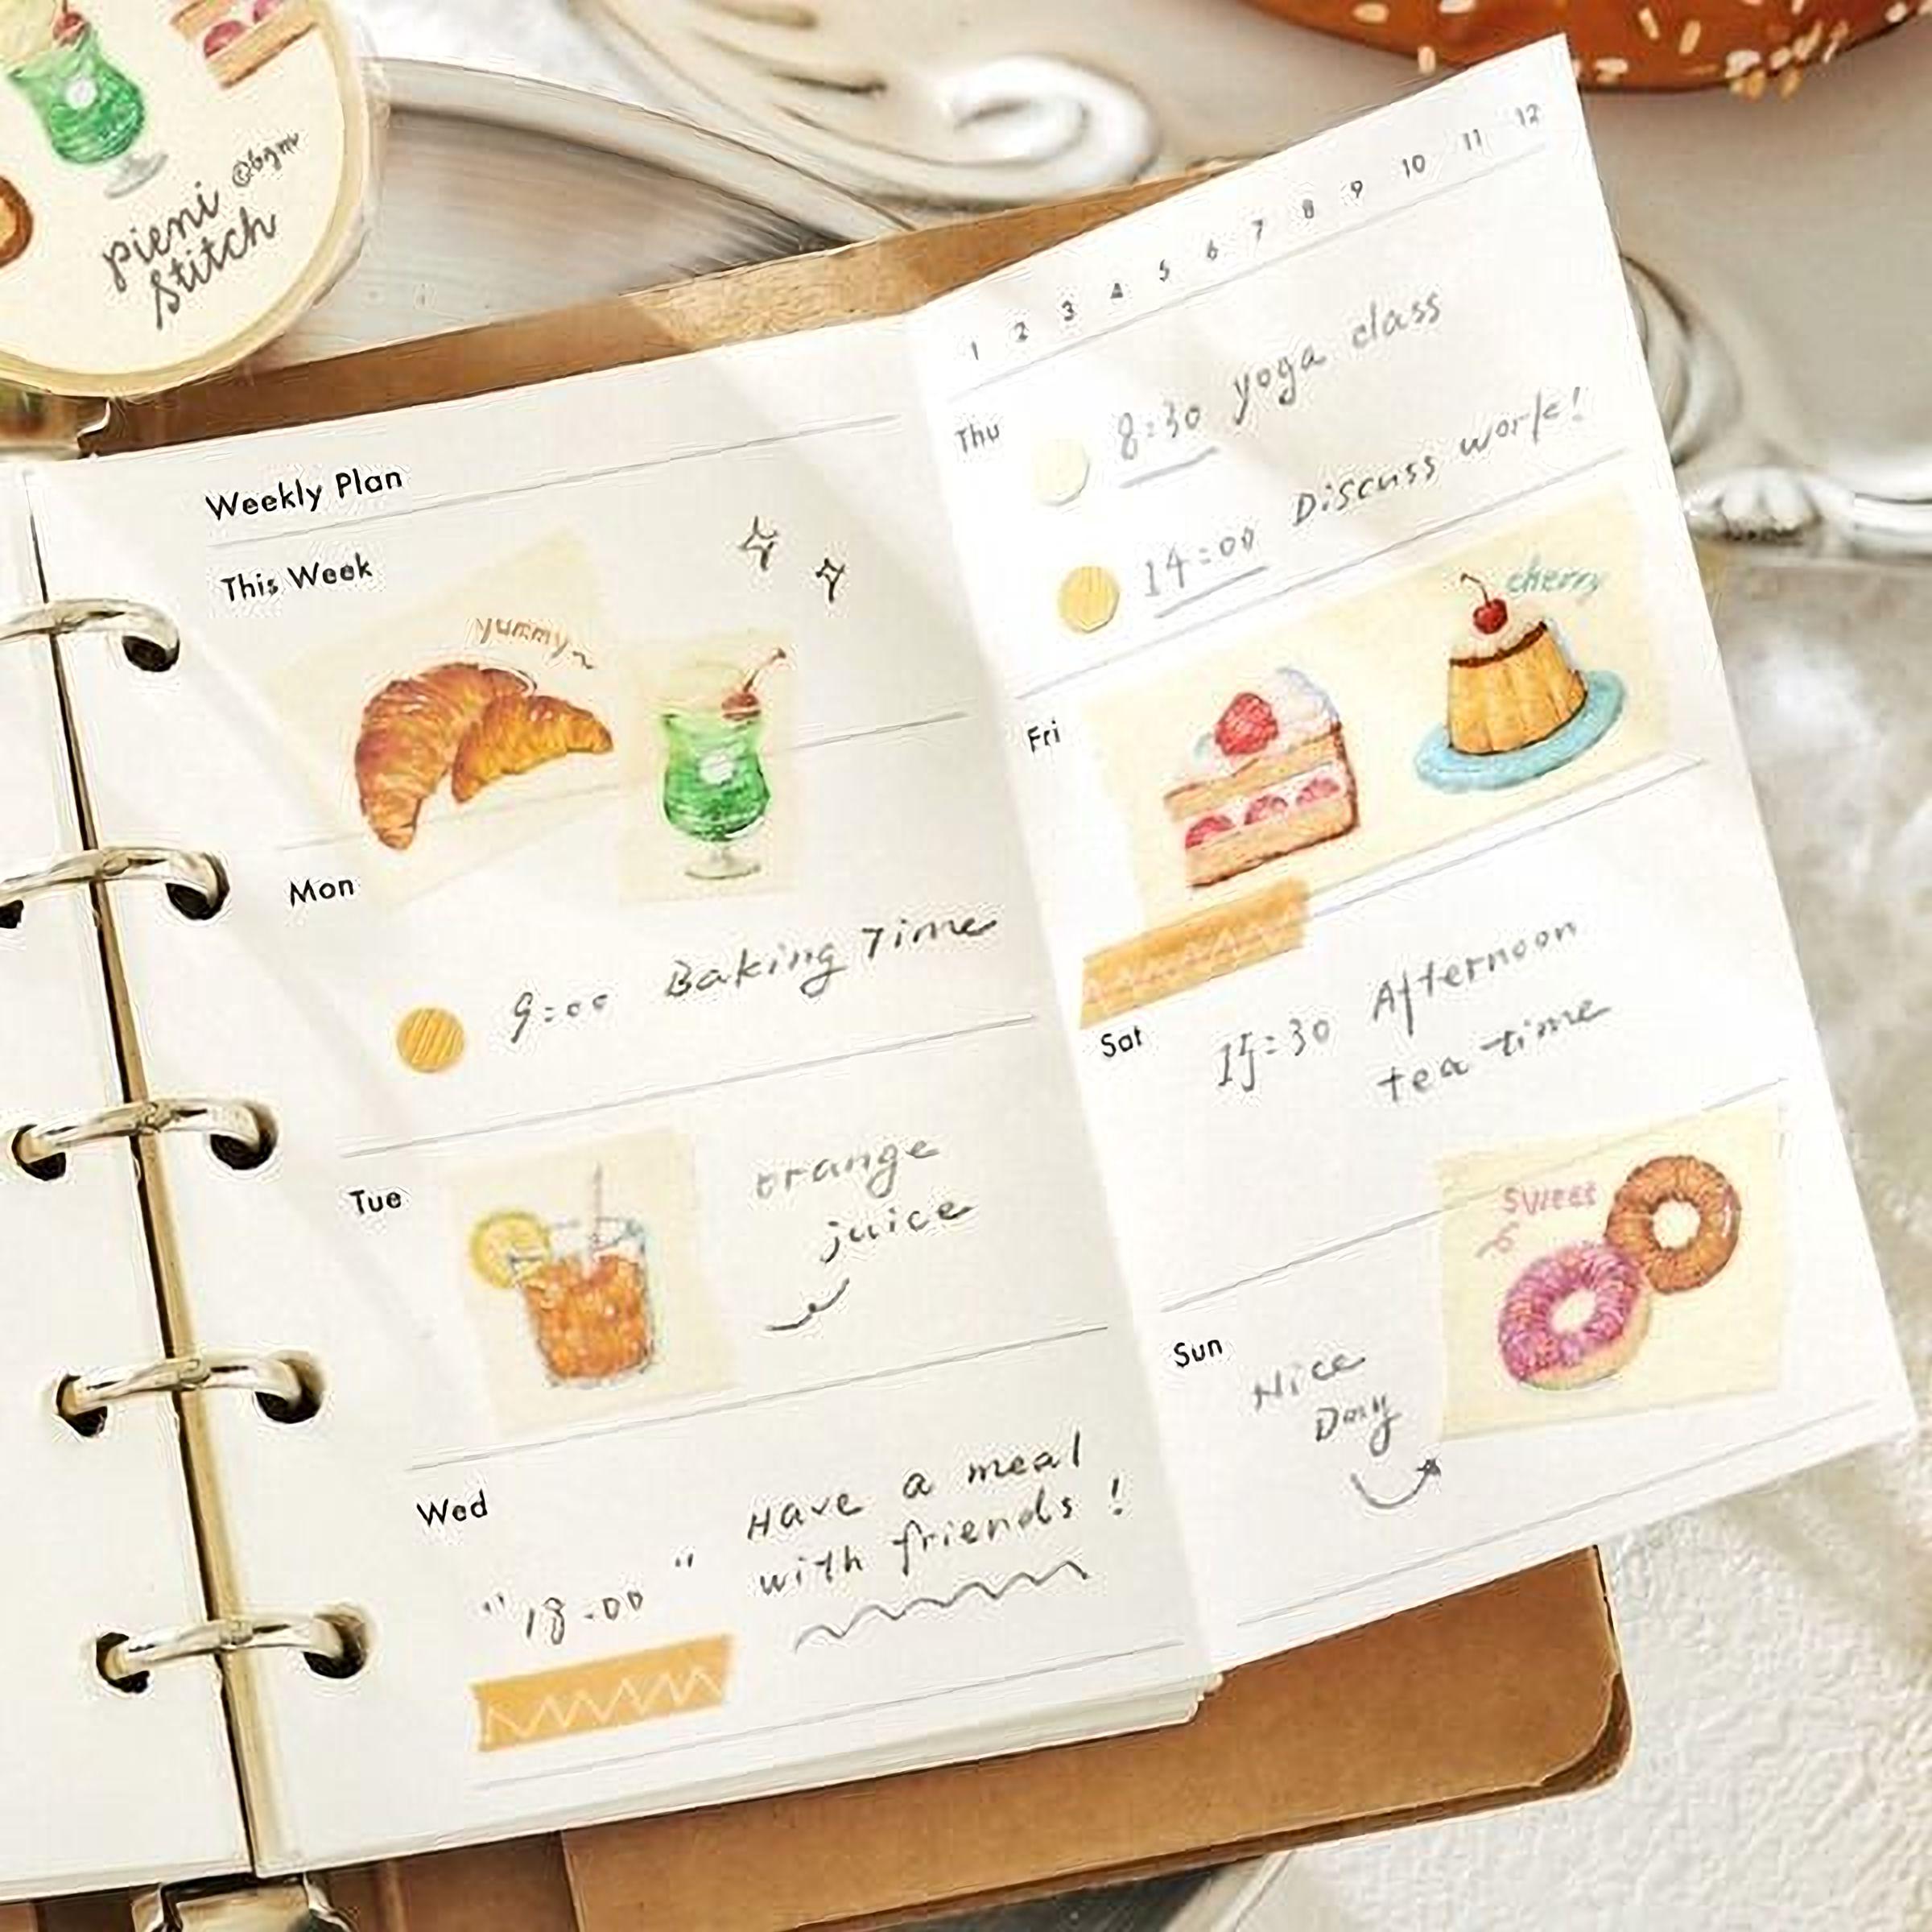 ©bgm
pieni
stitch
Weekly Plan
This Week
yummy~
Mon
9:00 Baking Time
Tue
orange
juice
Wed
"18:00" Have a meal
with friends!
1 2 3 4 5 6 7 8 9 10 11 12
Thu
8:30 yoga class
14:00 Discuss work!
Fri
cherry
Sat
15:30 Afternoon
tea time
sweet
Sun
Nice
Day